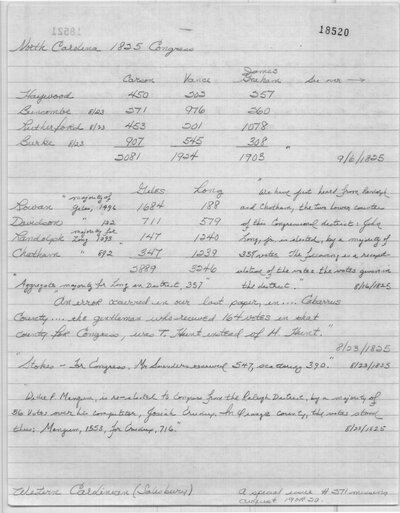 18520
North Carolina 1825 Congress
Carson Vance James Graham See over →
Haywood 450 202 257
Buncombe 8/23 271 976 260
Rutherford 8/23 453 201 1078
Burke 8/23 907 545 308 "
2081 1924 1903 9/6/1825
Giles Long
Rowan "majority of Giles, 1496 1684 188
Davidson " 132 711 579
Randolph majority for Long 1093 147 1240
Chatham " 892" 347 1239
2889 3246
"We have first heard from Randolph
and Chatham, the two lower counties
of this Congressional district: John
Long, jr. is elected, by a majority of
357 votes. The following is a
of the votes the votes given in
the district." 8/16/1825
"Aggregate majority for Long in District, 357"
"An error occurred in our last paper, in .... Cabarrus
County .... the gentleman who received 164 votes in that
county for Congress, was T. Hunt instead of H. Hunt."
8/23/1825
"Stokes - For Congress, Mr Saunders received 547, scattering 390." 8/23/1825
Willie P. Mangum, is re-elected to Congress from the Raleigh District, by a majority of
56 votes over his competitor, Josiah Crudup. In Orange County, the votes stood
thus: Mangum, 1553, for Crudup, 716." 8/23/1825
Western Carolinian (Salisbury)
A special issue # 271 missing
august 19 or 20.